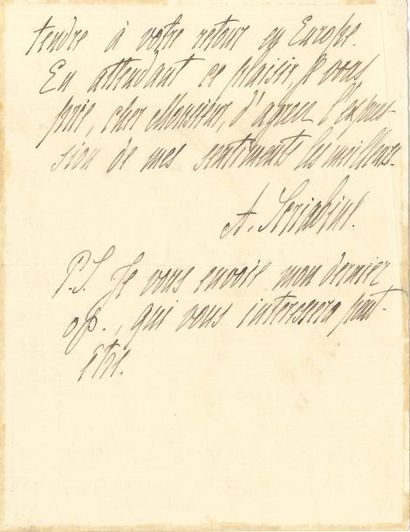 tendre à votre retour en Europe.
En attendant ce plaisir, je vous
prie, cher Monsieur, d'agreer l'expres-
sion de mes sentiments les meilleurs.
A. Scriabine.
P.S. Je vous envoie mon dernier
op., qui vous interessera peut-
être.